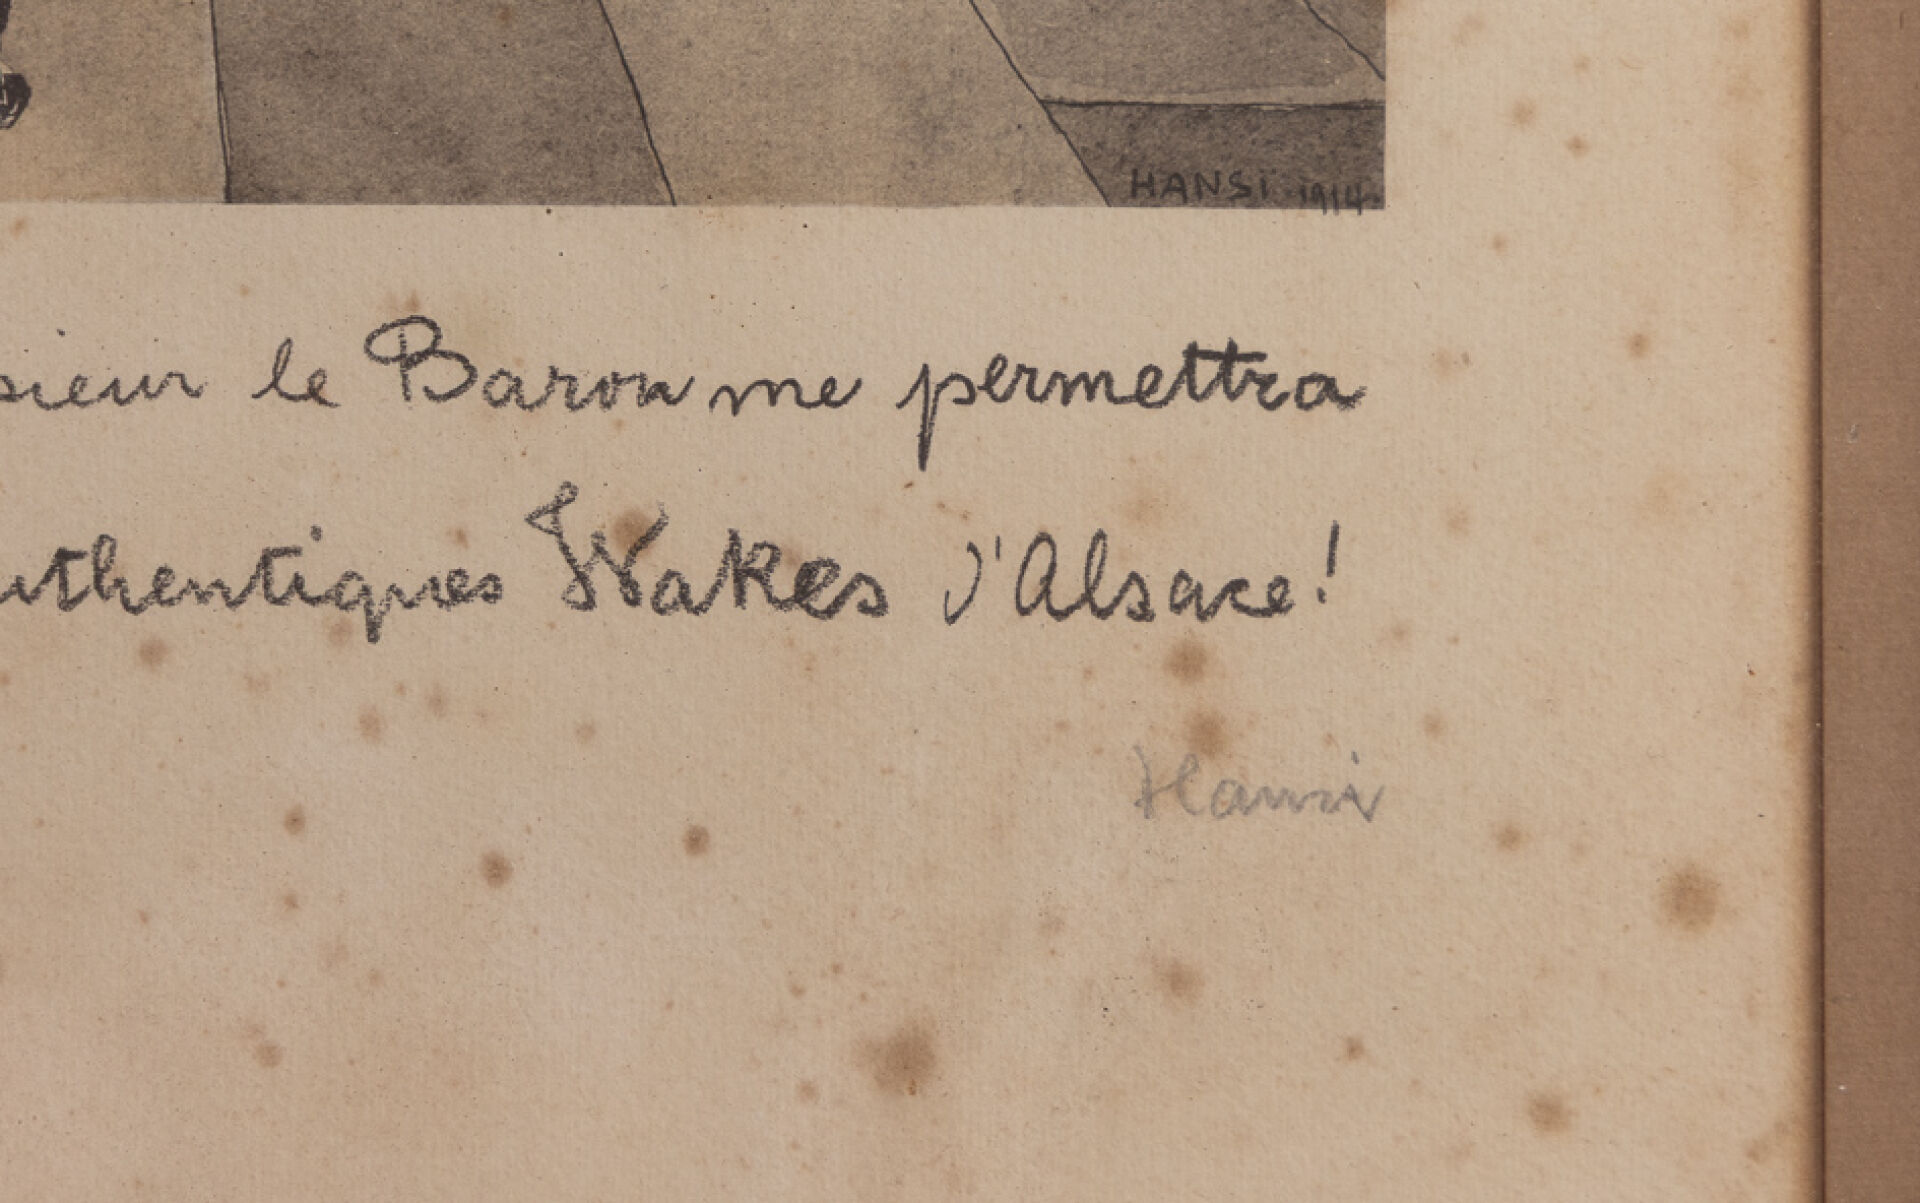 HANSI 1914
sieur le Baron me permettra
uthentiques Wakes d'Alsace!
Hansi